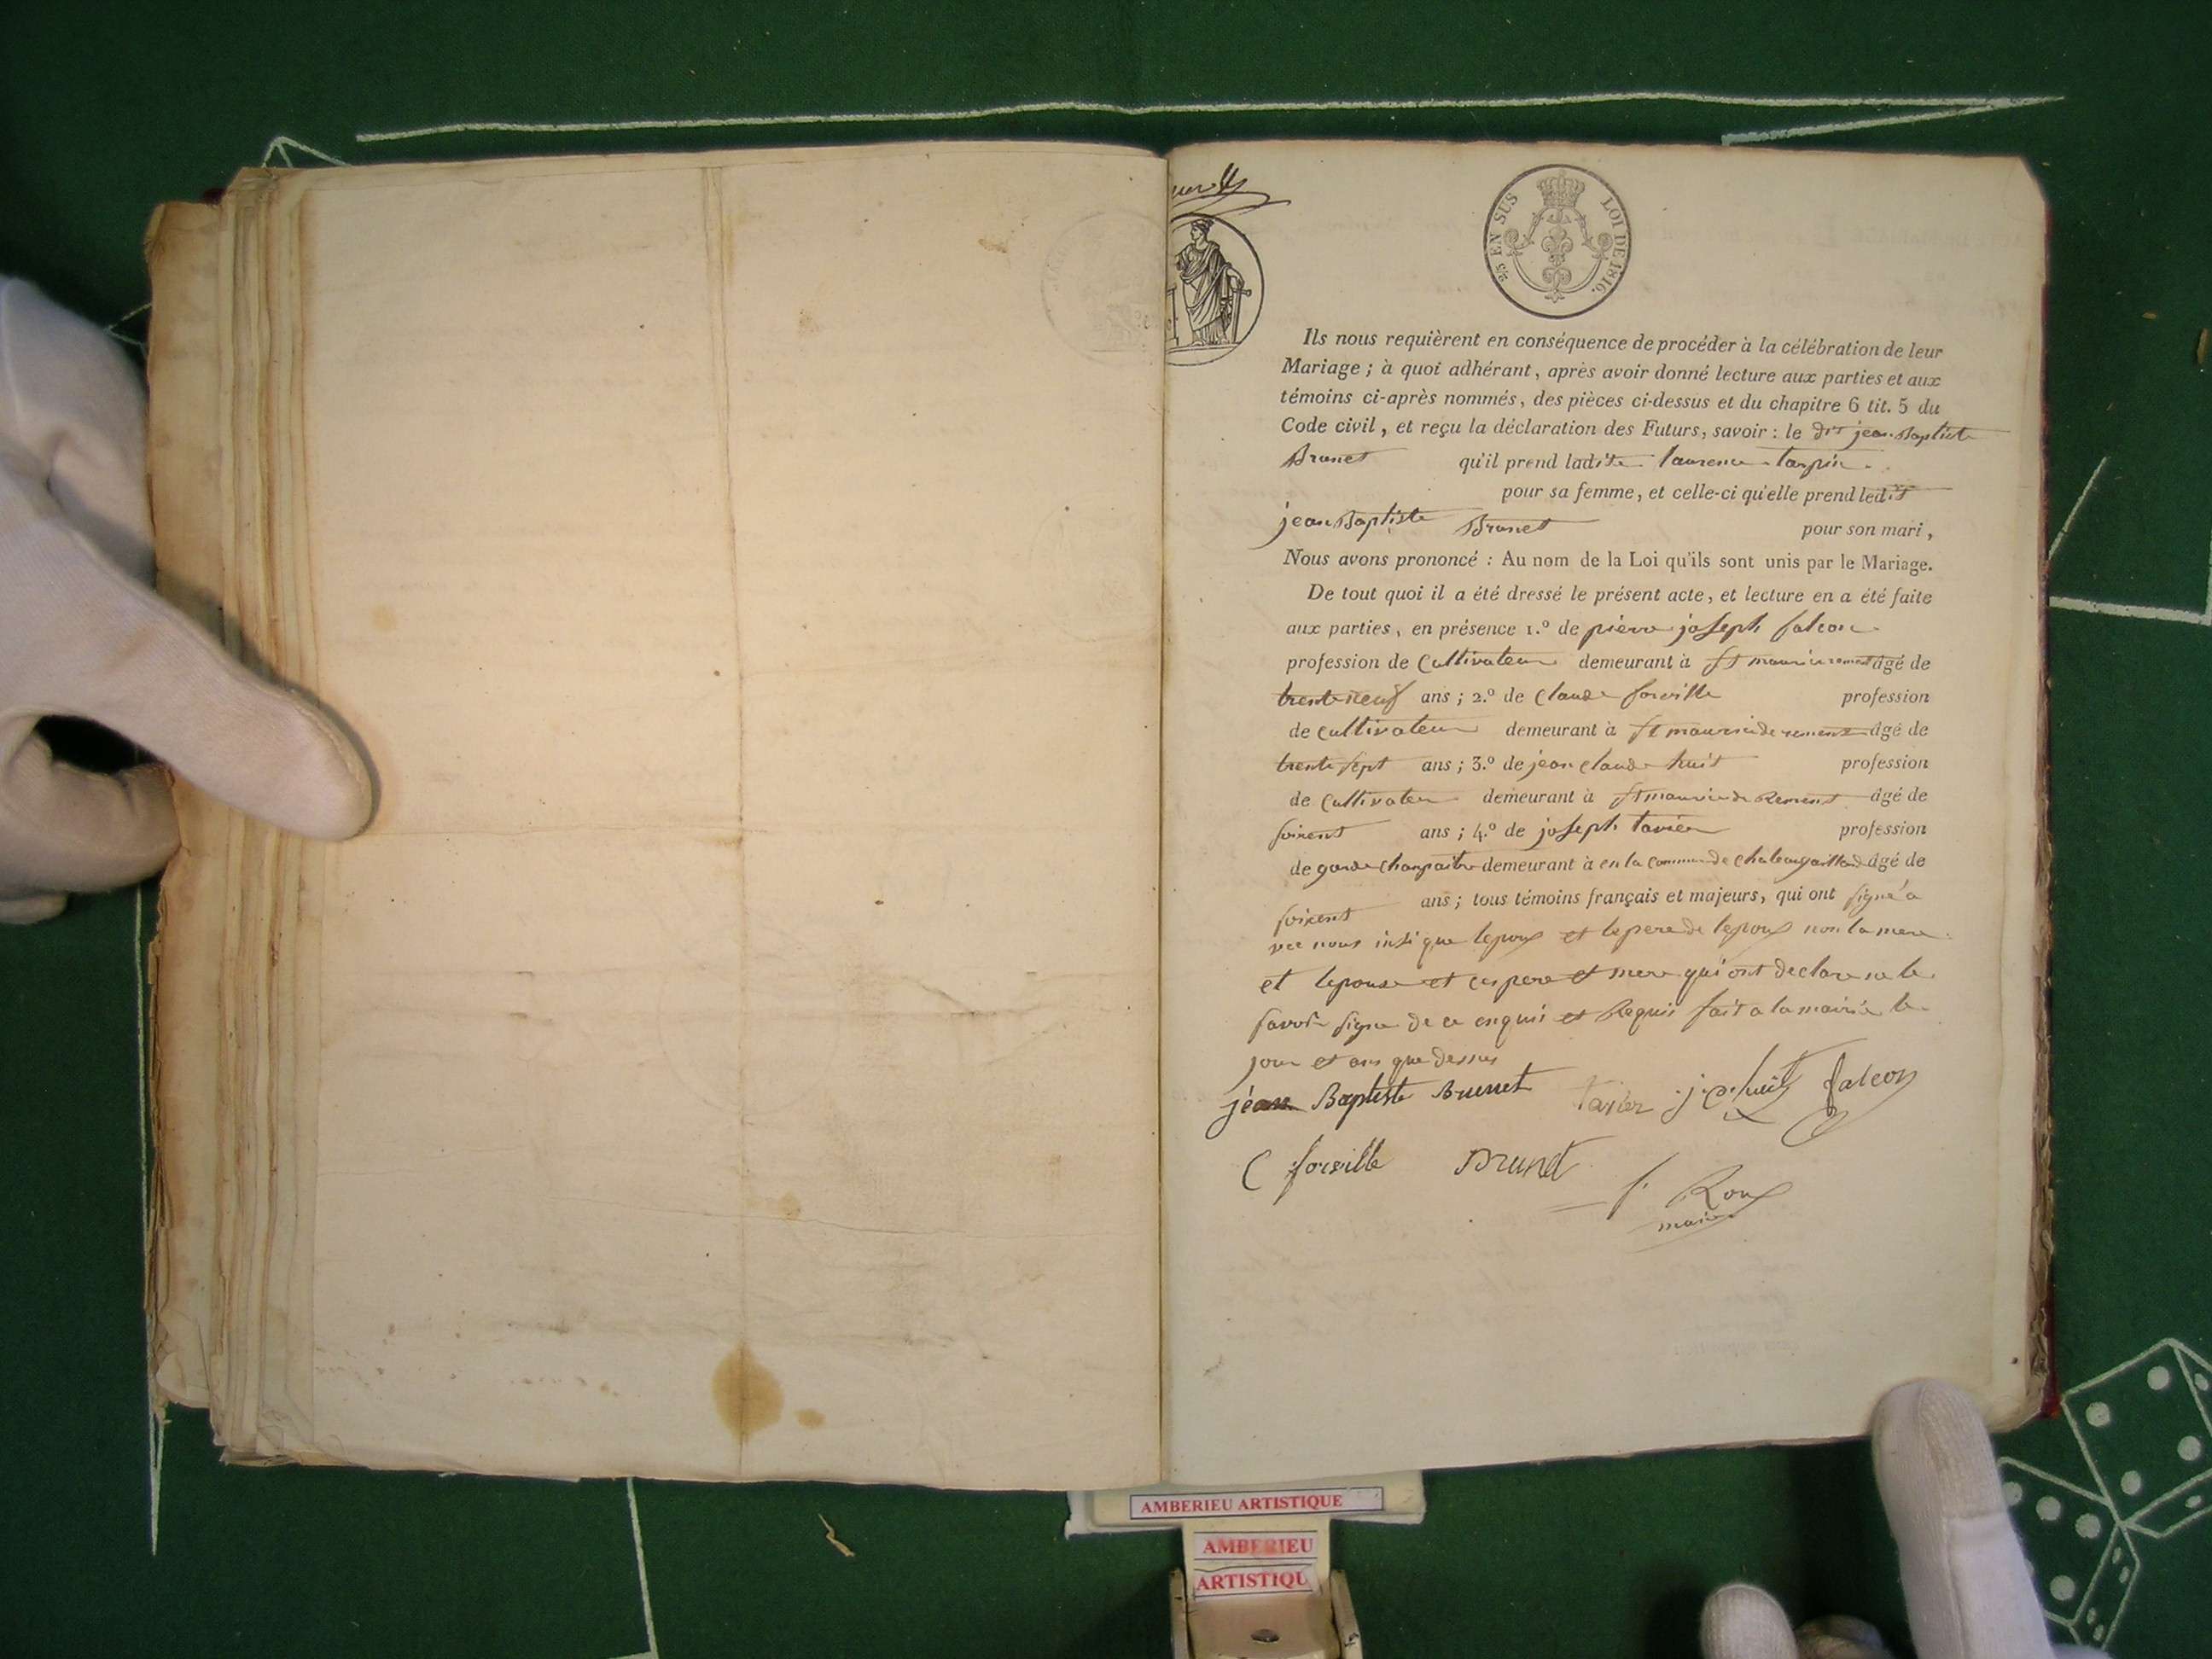 25 EN SUS LOI DE 1816.
Ils nous requièrent en conséquence de procéder à la célébration de leur
Mariage ; à quoi adhérant, après avoir donné lecture aux parties et aux
témoins ci-après nommés, des pièces ci-dessus et du chapitre 6 tit. 5 du
Code civil, et reçu la déclaration des Futurs, savoir : le dit jean Baptiste
Brunet qu'il prend ladite laurence tarpin
pour sa femme, et celle-ci qu'elle prend ledit
jean Baptiste Brunet pour son mari,
Nous avons prononcé : Au nom de la Loi qu'ils sont unis par le Mariage.
De tout quoi il a été dressé le présent acte, et lecture en a été faite
aux parties, en présence 1.º de pierre joseph falcon
profession de Cultivateur demeurant à st maurice remens âgé de
trente neuf ans ; 2.º de Claude forville profession
de cultivateur demeurant à st maurice de remens âgé de
trente sept ans ; 3.º de jean claude huit profession
de Cultivateur demeurant à st maurice de Remens âgé de
soixent ans ; 4.º de joseph tavier profession
de garde champaitre demeurant à en la commune de chateaugaillard âgé de
soixent ans ; tous témoins français et majeurs, qui ont signé a
vec nous insi que lepoux et le pere de lepoux non la mere
et lepouse et ces pere et mere qui ont declare ne le
savoir signe de ce enquis et Requis fait a la mairie le
jour et ans que dessus
jean Baptiste Brunet tavier j c huit falcon
C forville Brunet
f. Roux
maire
AMBERIEU ARTISTIQUE
AMBERIEU
ARTISTIQU